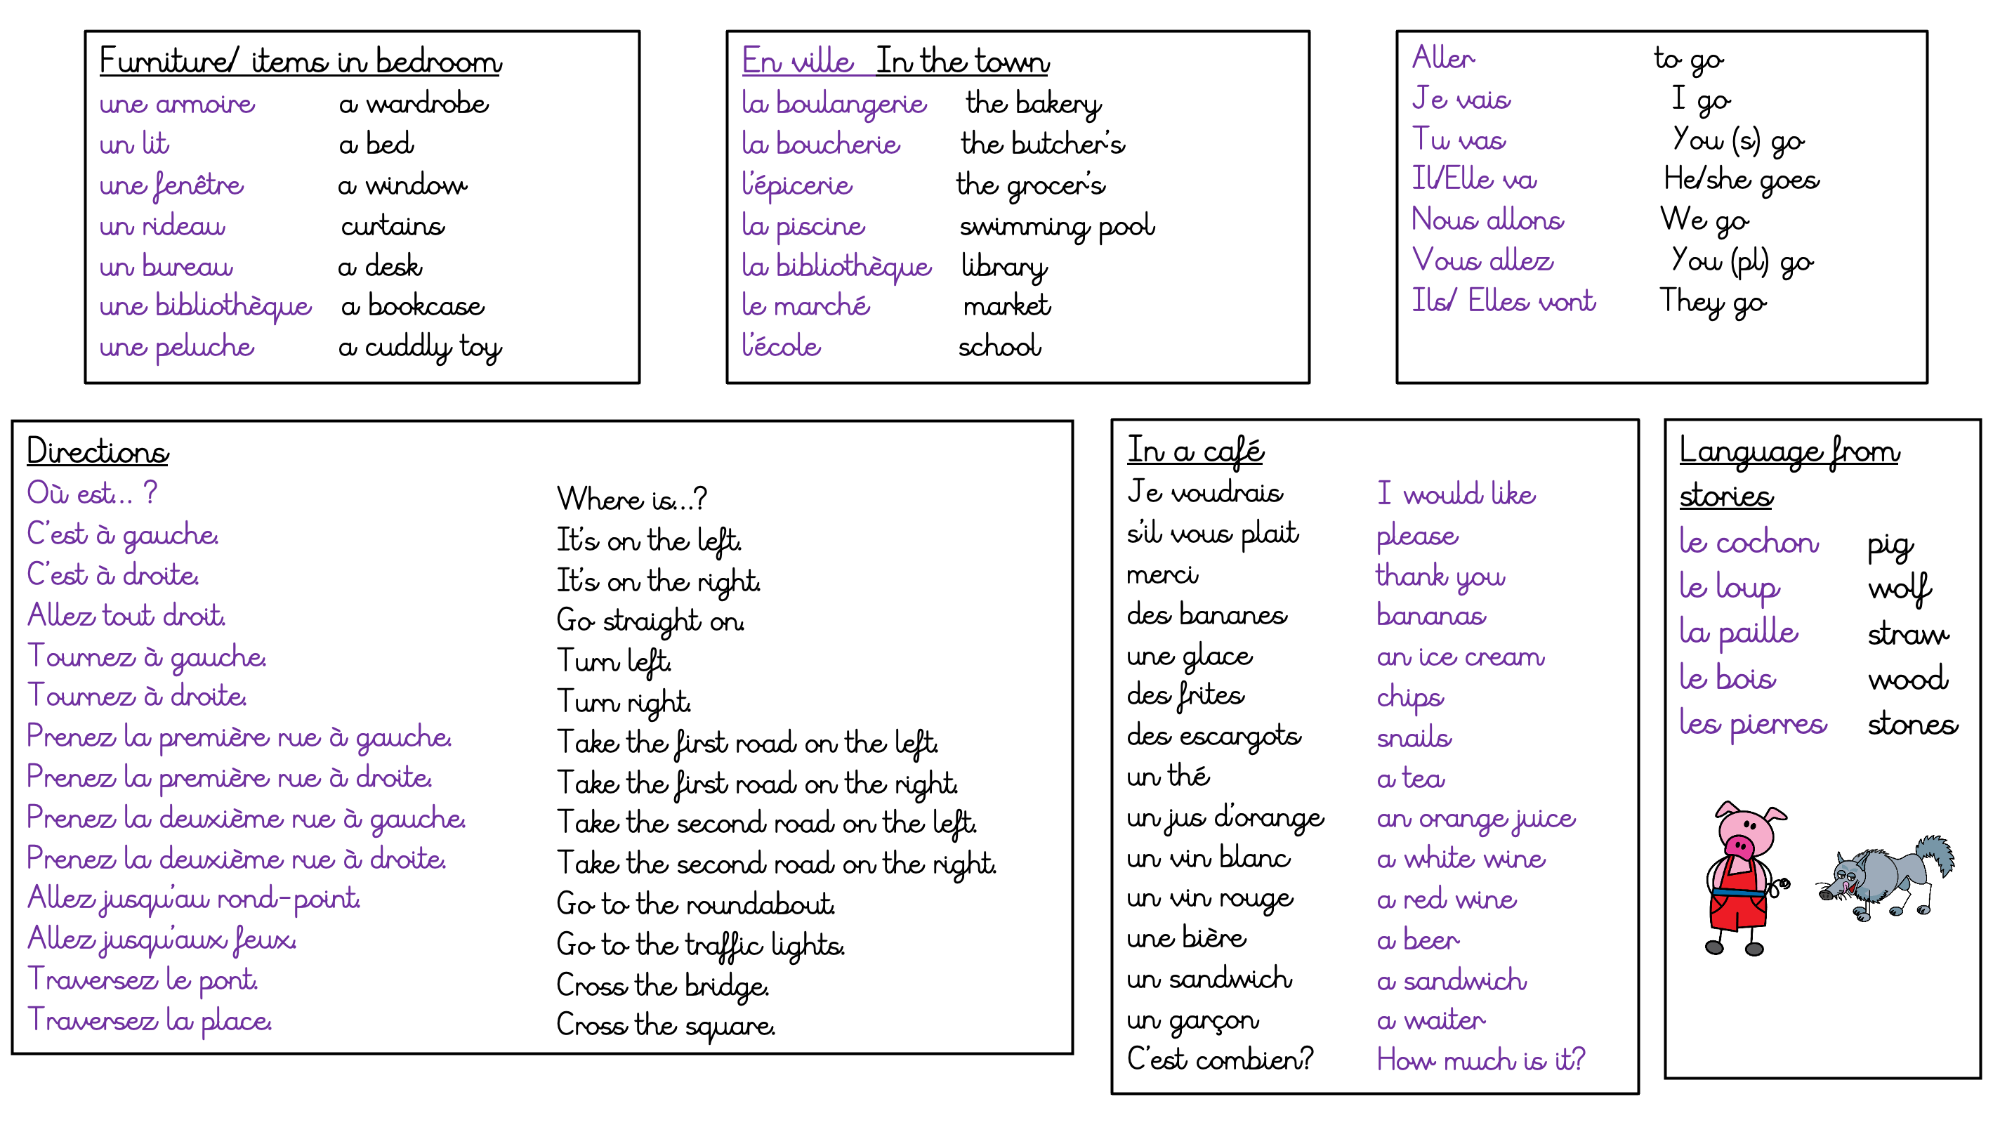 Furniture/ items in bedroom
une armoire a wardrobe
un lit a bed
une fenêtre a window
un rideau curtains
un bureau a desk
une bibliothèque a bookcase
une peluche a cuddly toy
En ville In the town
la boulangerie the bakery
la boucherie the butcher's
l'épicerie the grocer's
la piscine swimming pool
la bibliothèque library
le marché market
l'école school
Aller to go
Je vais I go
Tu vas You (s) go
Il/Elle va He/she goes
Nous allons We go
Vous allez You (pl) go
Ils/ Elles vont They go
Directions
Où est... ? Where is...?
C'est à gauche. It's on the left.
C'est à droite. It's on the right.
Allez tout droit. Go straight on.
Tournez à gauche. Turn left.
Tournez à droite. Turn right.
Prenez la première rue à gauche. Take the first road on the left.
Prenez la première rue à droite. Take the first road on the right.
Prenez la deuxième rue à gauche. Take the second road on the left.
Prenez la deuxième rue à droite. Take the second road on the right.
Allez jusqu'au rond-point. Go to the roundabout.
Allez jusqu'aux feux. Go to the traffic lights.
Traversez le pont. Cross the bridge.
Traversez la place. Cross the square.
In a café
Je voudrais I would like
s'il vous plait please
merci thank you
des bananes bananas
une glace an ice cream
des frites chips
des escargots snails
un thé a tea
un jus d'orange an orange juice
un vin blanc a white wine
un vin rouge a red wine
une bière a beer
un sandwich a sandwich
un garçon a waiter
C'est combien? How much is it?
Language from
stories
le cochon pig
le loup wolf
la paille straw
le bois wood
les pierres stones